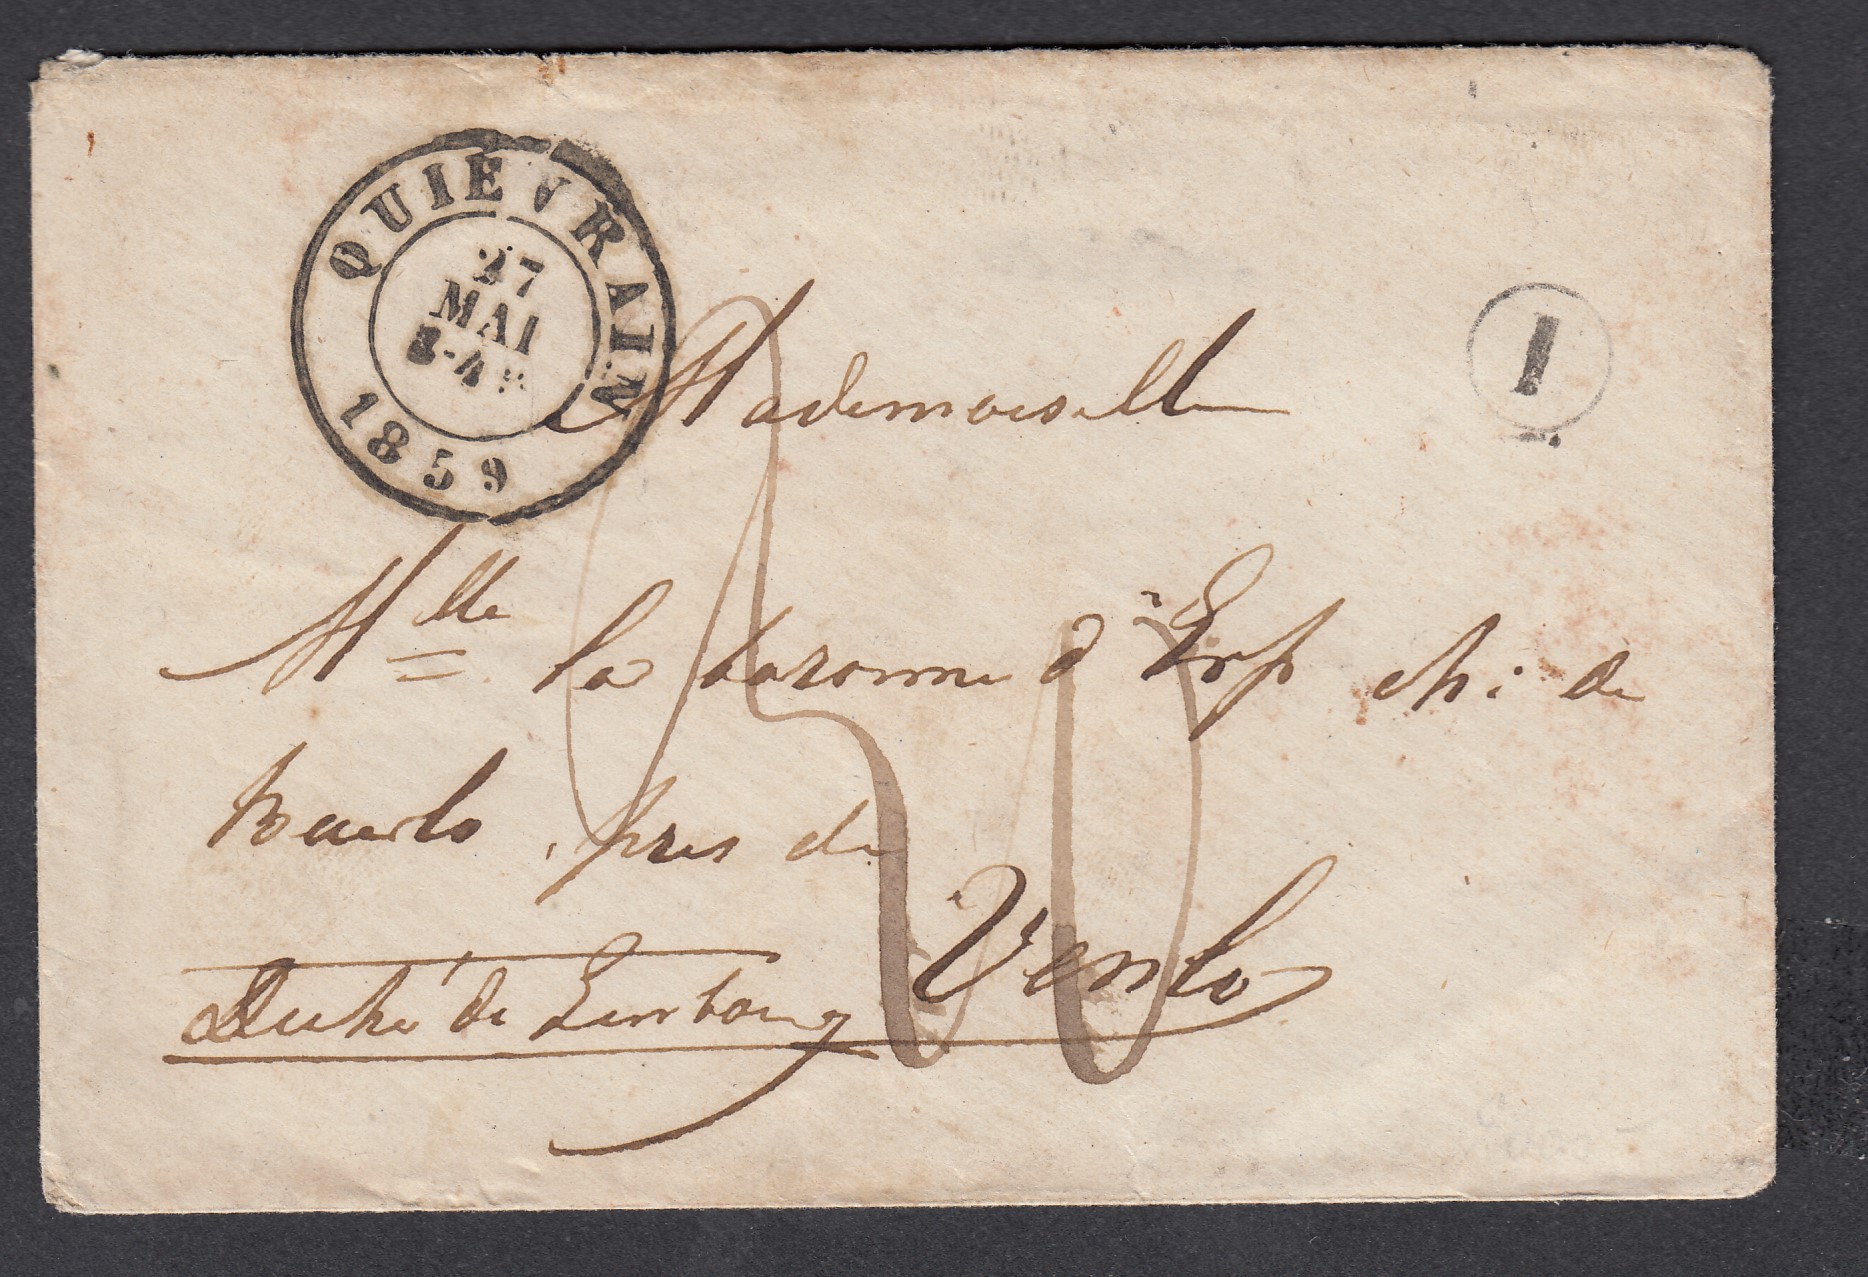 QUIÉVRAIN
27
MAI
1859
I
Mademoiselle
Mlle la baronne d'Erp chi de
Baerlo, près de
Venlo
Duché de Limbourg